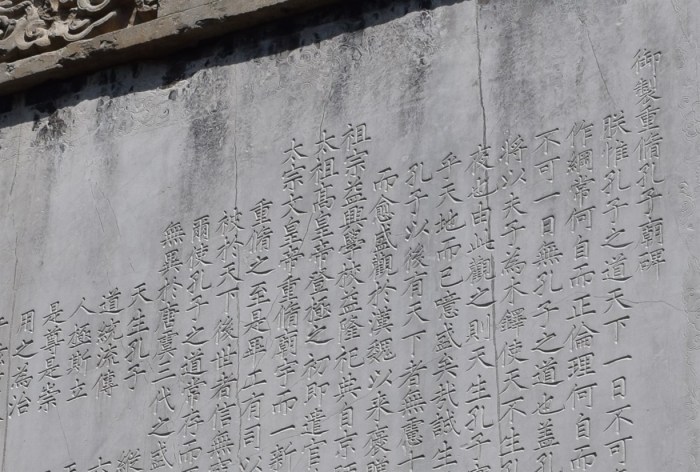 御製重脩孔子廟碑
朕惟孔子之道天下一日不可
作綱常何自而正倫理何自
不可一日無孔子之道也蓋孔
將以夫子為木鐸使天不生孔
夜也由此觀之則天生孔子
乎天地而已噫盛矣哉誠生
孔子以後有天下者無慮十
而愈盛觀於漢魏以來褒贈
祖宗益興學校益隆祀典自京師
太祖高皇帝登極之初即遣官
太宗文皇帝重脩廟宇而一新
重脩之至是畢工有司以
被於天下後世者信無
爾使孔子之道常存而
無異於唐虞三代之盛
天生孔子 縱
道統流傳
人極斯立
是尊是崇
用之為治